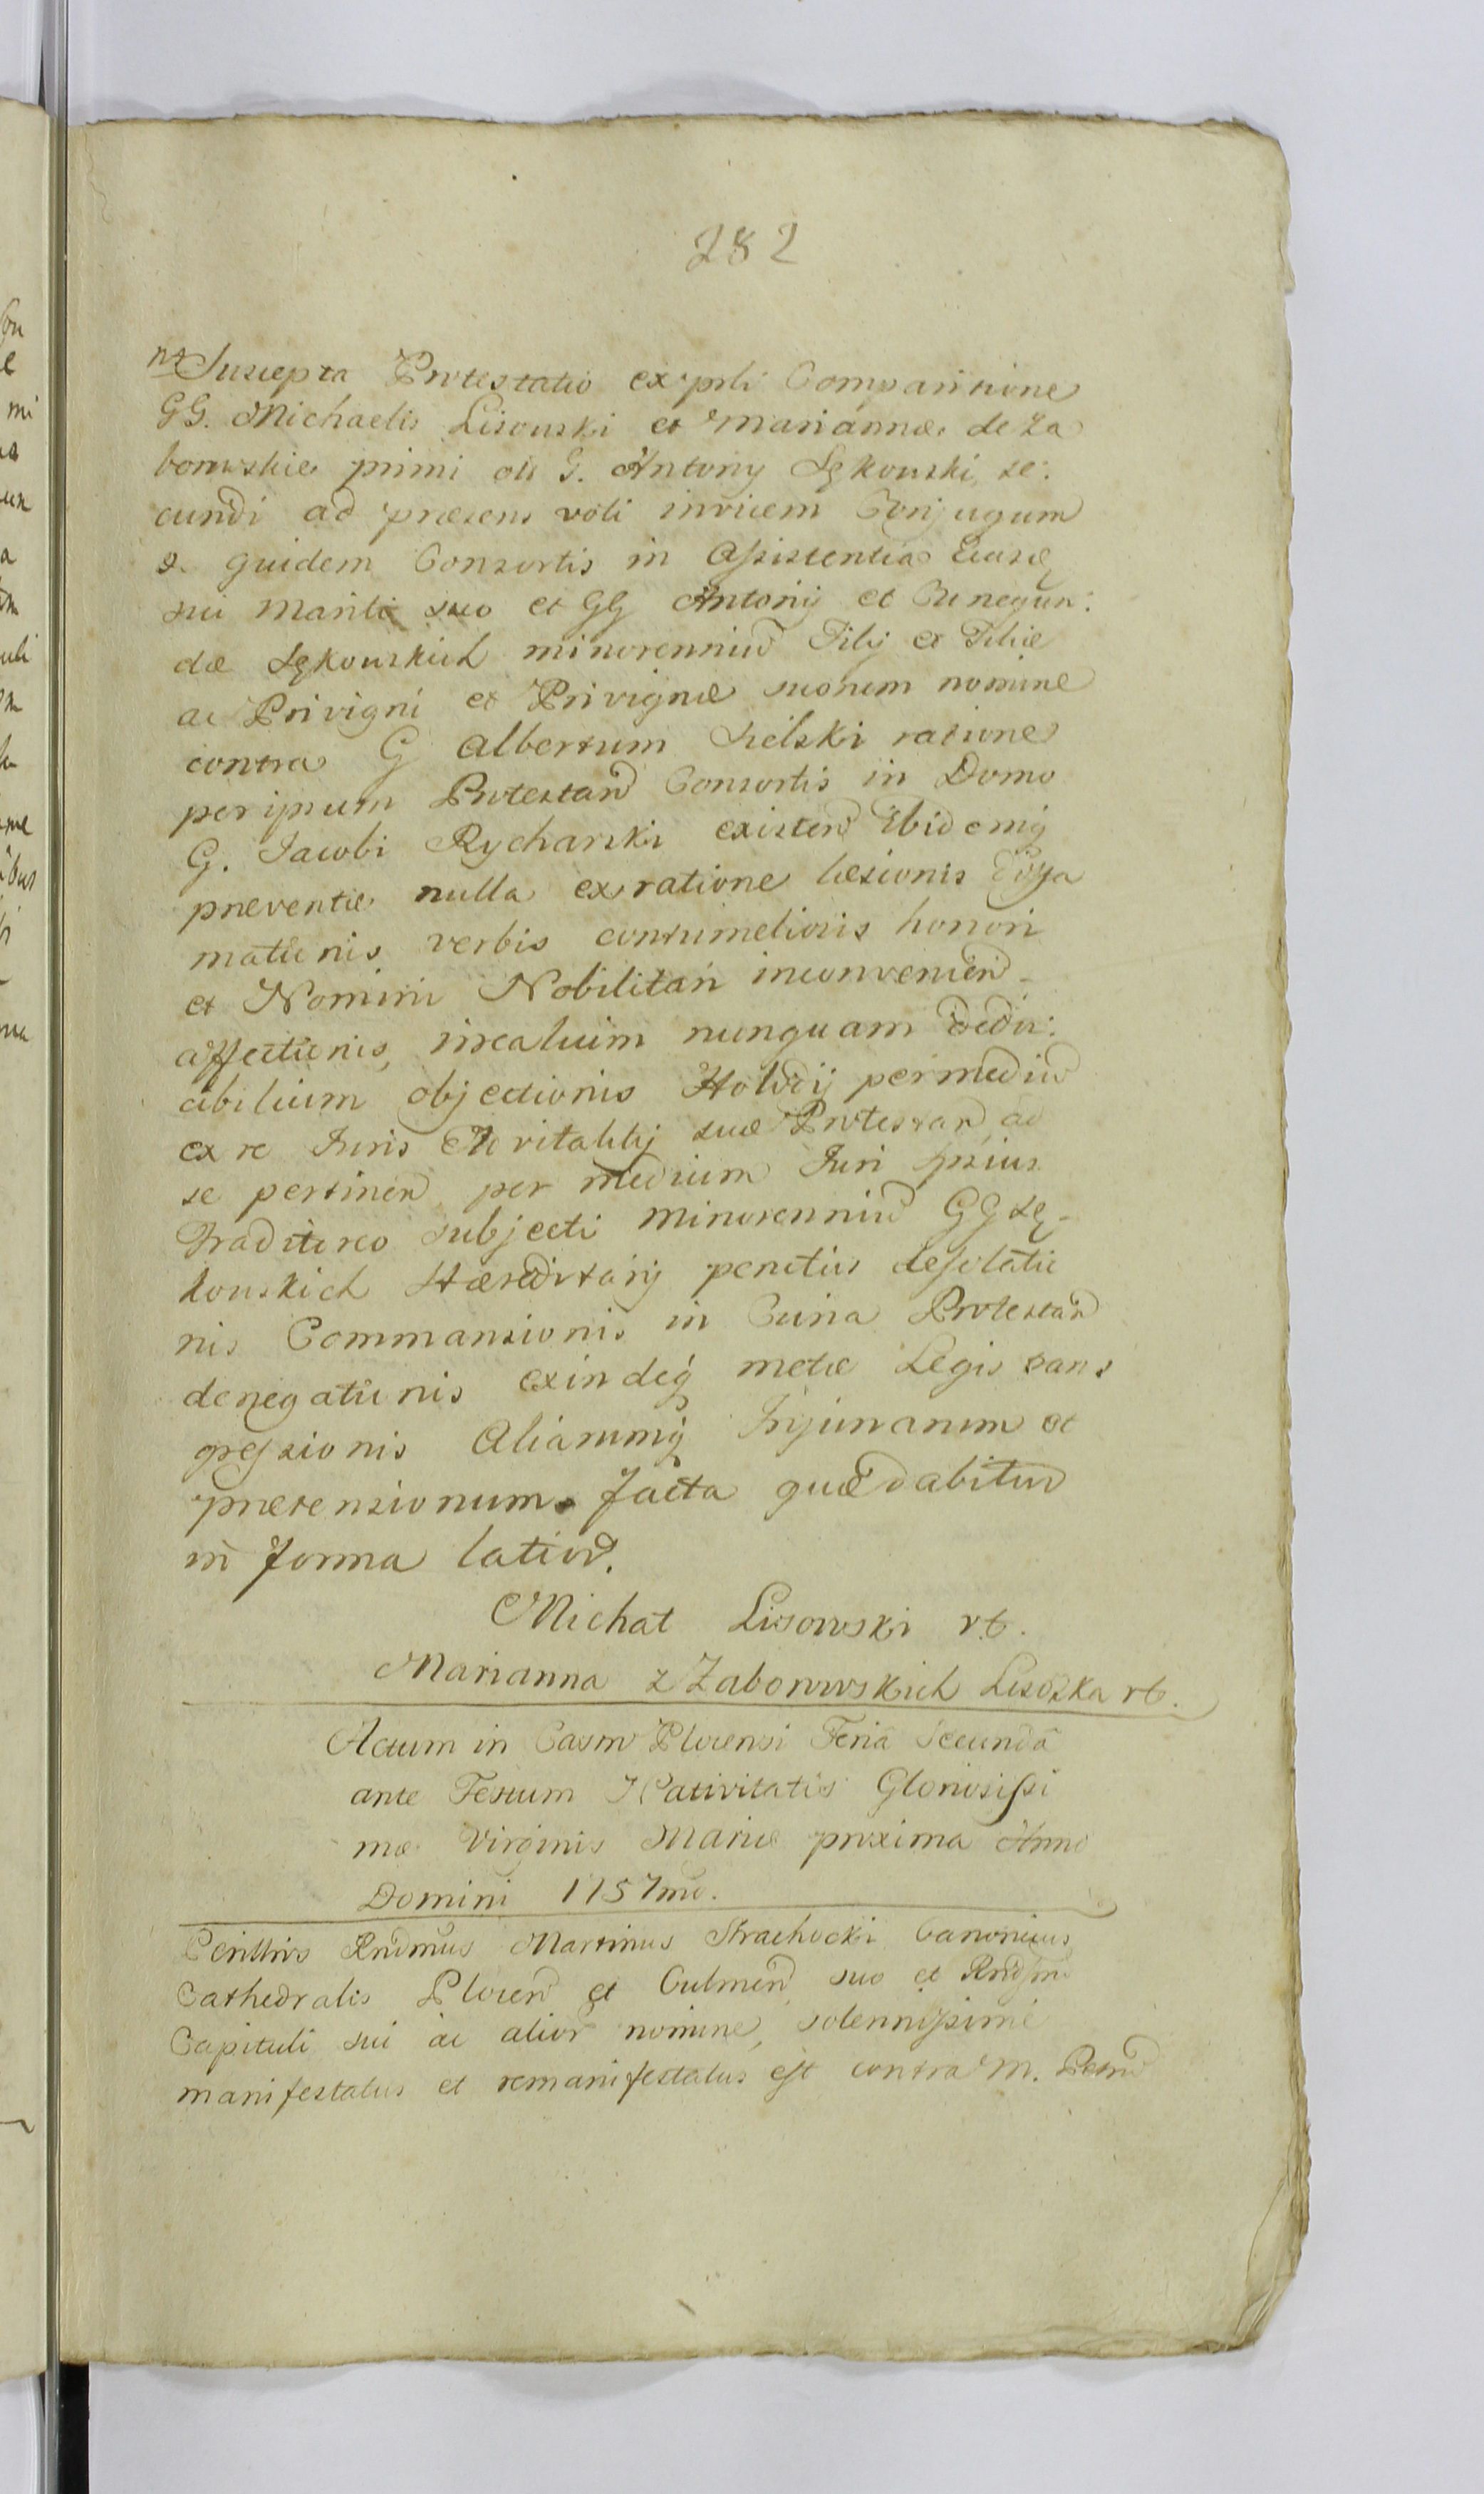 282
nt Suscepta Protestatio ex prli Comparitione
GG. Michaelis Lisowski et Mariannæ de Za
borowskie primi oli G. Antony Sękowski se:
cundi ad præsens voti invicem Conjugum
& quidem Consortis in Assistentia
sui Mariti suo et GG Antonij et Cunegun:
dæ Sękowskich minorenniu Filij et Filiæ
ac Privigni et Privignæ suorum nomine
contra G Albertum Sielski ratione
per ipsum Protestan Consortis in Domo
G. Jacobi Rycharski existen Ibidemq
præventæ nulla ex ratione læsionis
mationis verbis contumeliosis honori
et Nomini Nobilitari inconvenien
affectionis, nunquam dedu:
cibilium objectionis permediu
ex re Juris Advitalitij suæ Protestan ad
se pertinen per medium Juri ipsius
Traditoreo subjecti minorenniu GG Sę-
kowskich Hæreditarij penitus desolatio
nis Commansionis in Protestan
denegationis exindeq metæ Legis trans
gressionis Aliarumq Injuriarum et
prætensionum facta quæ dabitur
in forma latior.
Michał Lisowski rb.
Marianna z Zaborowskich Lisoska rb.
Actum in Castro Plocensi Feria Secunda
ante Festum Nativitatis Gloriosissi
mæ Virginis Mariæ proxima Anno
Domini 1757mo.
Perillris Rndmus Martinus Strachocki Canonicus
Cathedralis Plocen et Culmen suo et Rndsmi
Capituli sui ac alior nomine, solennissime
manifestatus et remanifestatus est contra M.